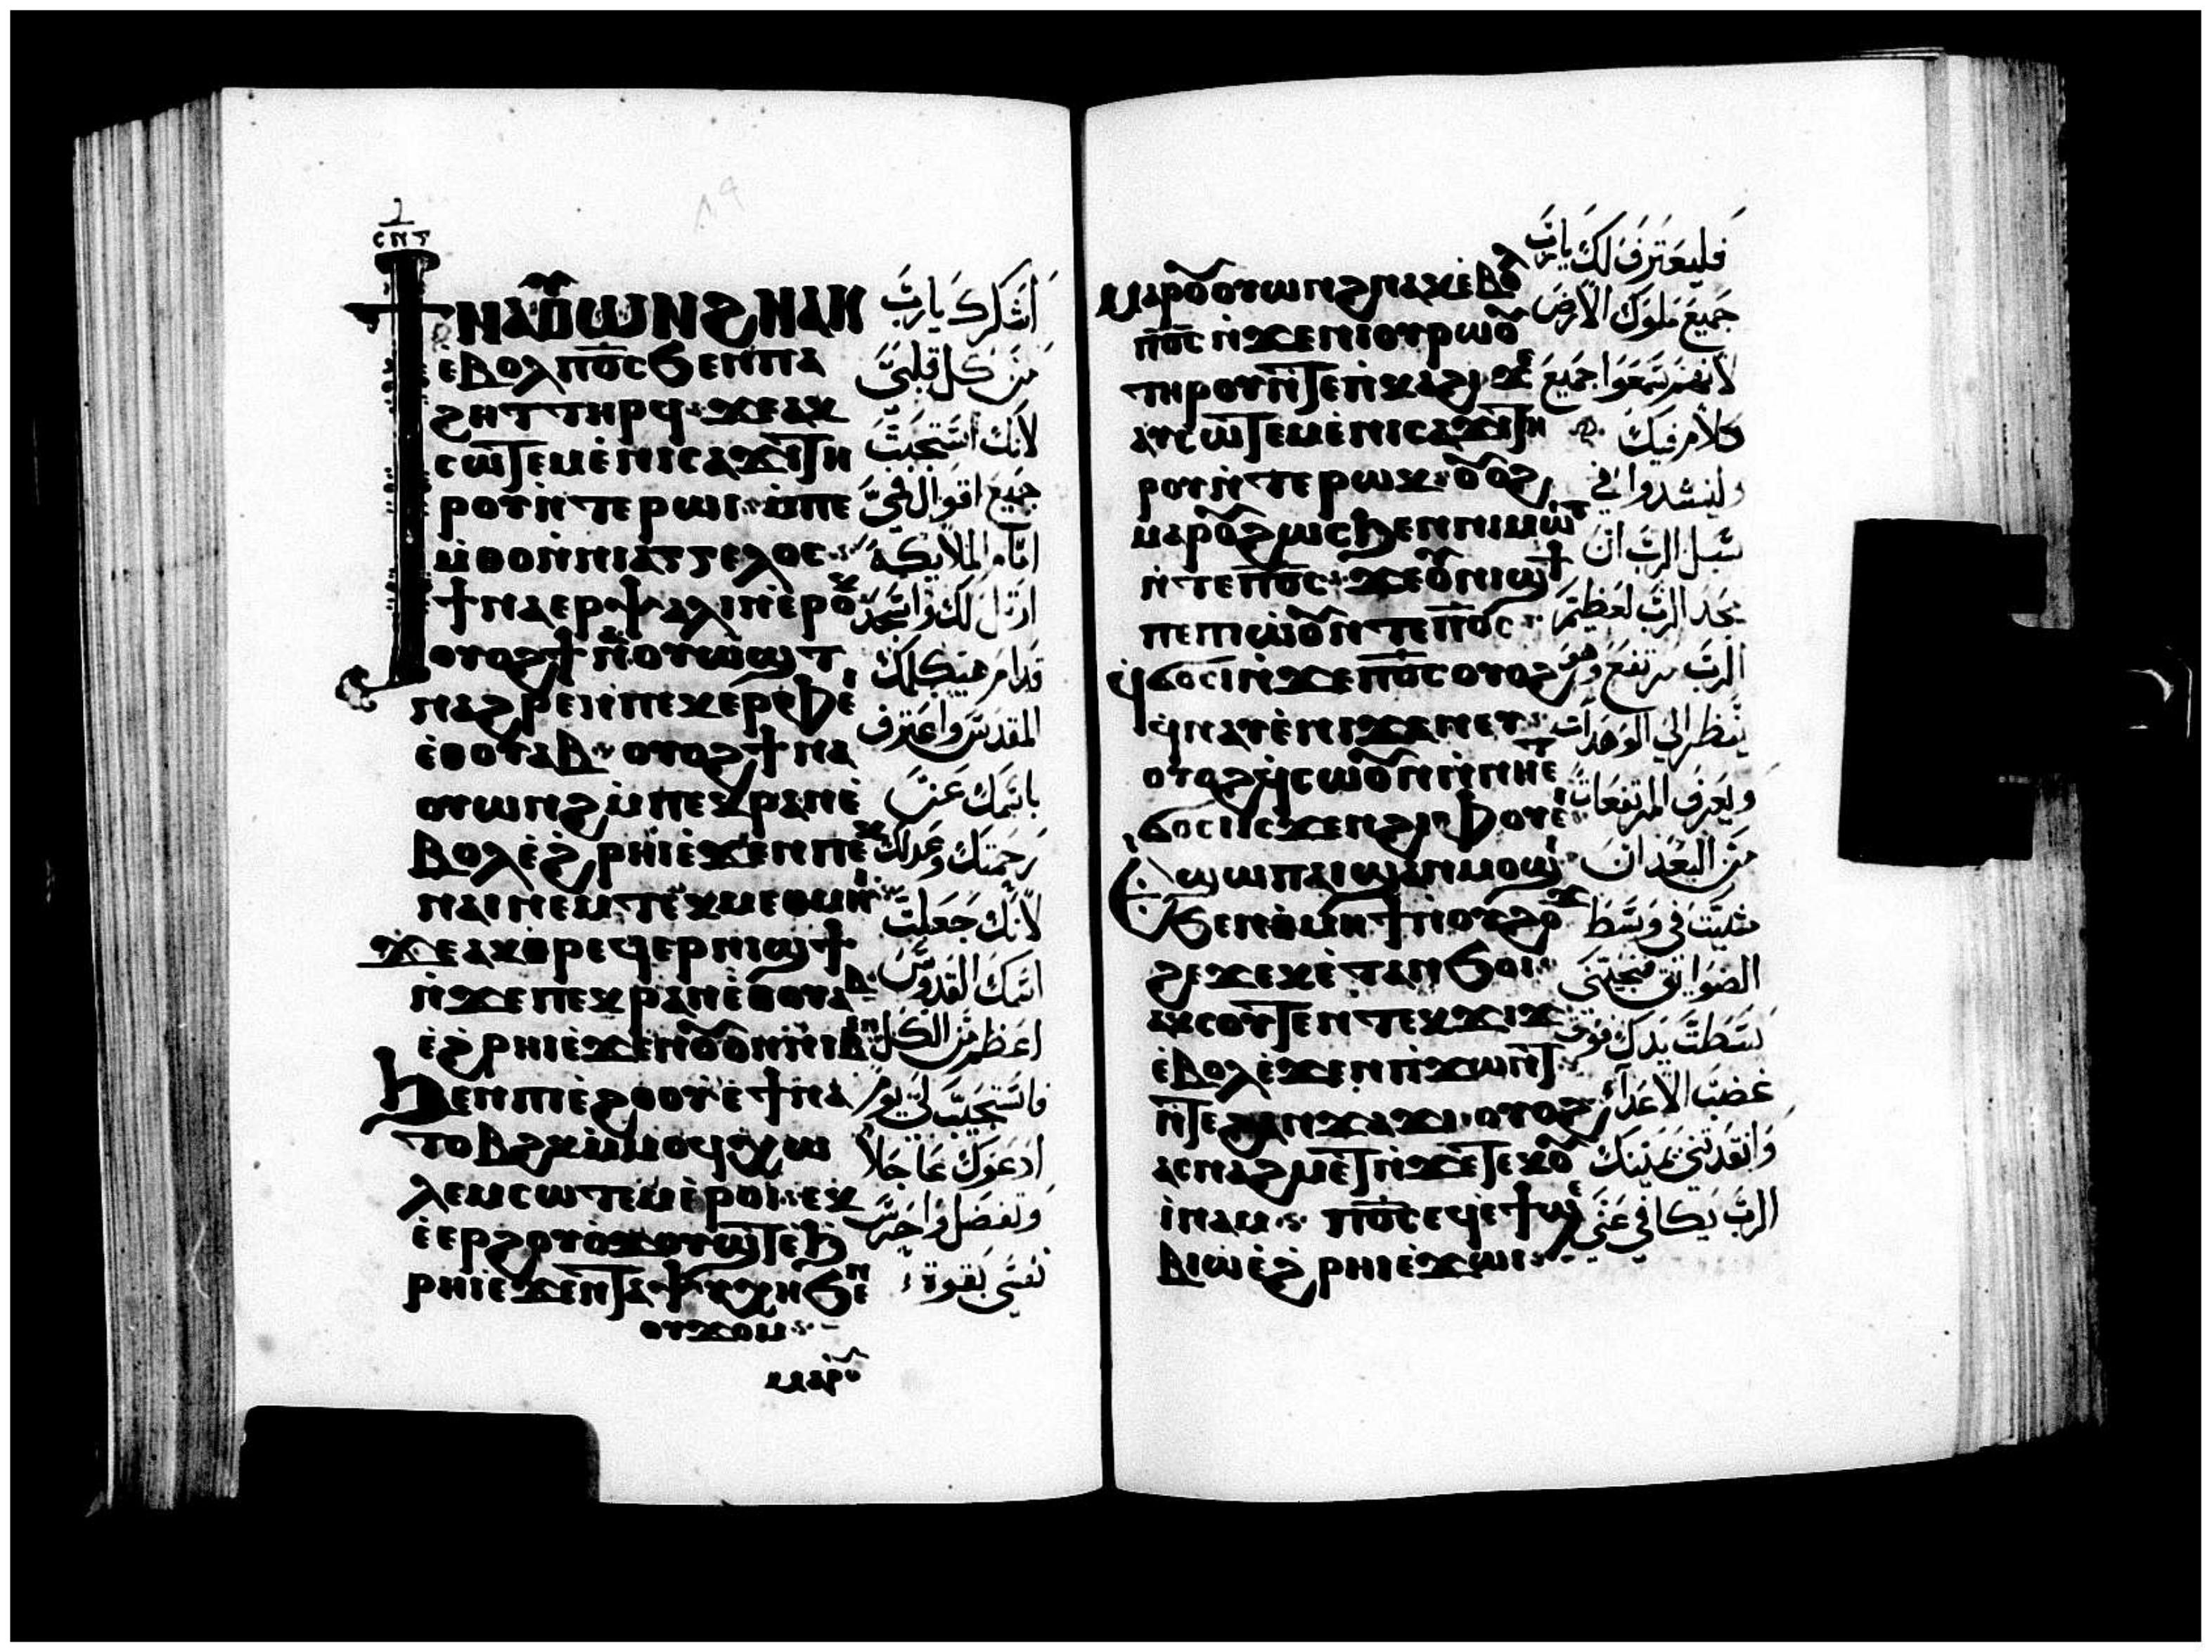 Ϯⲛⲁⲟⲩⲱⲛϩⲛⲁⲕ
ⲉ̀ⲃⲟⲗⲡ̅ⲟ̅ⲥϧⲉⲛⲡⲁ
ϩⲏⲧⲧⲏⲣϥ· ϫⲉⲁⲕ
ⲥⲱⲧⲉⲙⲉ̀ⲛⲓⲥⲁϫⲓⲧⲏ
ⲣⲟⲩⲛ̀ⲧⲉⲣⲱⲓ· ⲙ̀ⲡⲉ
ⲙ̀ⲑⲟⲛ̀ⲛⲓⲁⲅⲅⲉⲗⲟⲥ
ϯⲛⲁⲉⲣⲯⲁⲗⲓⲛⲉ̀ⲣⲟⲕ
ⲟⲩⲟϩϯⲛⲁⲟⲩⲱϣⲧ
ⲛⲁϩⲣⲉⲛⲡⲉⲕⲉⲣⲫⲉⲓ
ⲉ̀ⲑⲟⲩⲁⲃ· ⲟⲩⲟϩϯⲛⲁ
ⲟⲩⲱⲛϩⲙ̀ⲡⲉⲕⲣⲁⲛⲉ̀
ⲃⲟⲗⲉ̀ϩⲣⲏⲓⲉ̀ϫⲉⲛⲡⲉⲕ
ⲛⲁⲓⲛⲉⲙⲧⲉⲕⲙⲉⲑⲙⲏⲓ
ϫⲉⲁⲕⲑⲣⲉϥⲉⲣⲛⲓϣϯ
ⲛ̀ϫⲉⲡⲉⲕⲣⲁⲛⲉ̀ⲑⲟⲩⲁⲃ
ⲉ̀ϩⲣⲏⲓⲉ̀ϫⲉⲛⲟⲩⲟⲛⲛⲓⲃⲉⲛ
ϧⲉⲛⲡⲓⲉ̀ϩⲟⲟⲩⲉ̀ϯⲛⲁ
ⲧⲟⲃϩⲕⲙ̀ⲙⲟϥⲭⲱ
ⲗⲉⲙⲥⲱⲧⲉⲙⲉ̀ⲣⲟⲓ· ⲉⲕ
ⲉ̀ⲉⲣϩⲟⲩⲟ̀ϫⲟⲩϣⲧⲉ̀ϧ
ⲣⲏⲓⲉϫⲉⲛⲧⲁⲯⲩⲭⲏϧⲉⲛ
ⲟⲩϫⲟⲙ
ⲙⲁⲣⲟⲩ
اشكرك يا رب
من كل قلبي
لانك استجبت
جميع اقوال في
امام الملايكة
ارتل لك واسجد
قدام هيكلك
المقدس واعترف
باسمك على
رحمتك وعدلك
لانك جعلت
اسمك القدوس
اعظم من الكل
فاستجيب لي يوم
ادعوك عاجلا
وتفضل واحرس
نفسي بقوة
ⲙⲁⲣⲟⲩⲟⲩⲱⲛϩⲛⲁⲕⲉ̀ⲃⲟⲗ
ⲡ̅ⲟ̅ⲥⲛ̀ϫⲉⲛⲓⲟⲩⲣⲱⲟⲩ
ⲧⲏⲣⲟⲩⲛ̀ⲧⲉⲡ̀ⲕⲁϩⲓ ϫⲉ
ⲁⲩⲥⲱⲧⲉⲙⲉ̀ⲛⲓⲥⲁϫⲓⲧⲏ
ⲣⲟⲩⲛ̀ⲧⲉⲣⲱⲕ· ⲟⲩⲟϩ
ⲙⲁⲣⲟⲩϩⲱⲥϧⲉⲛⲛⲓⲙⲱⲓⲧ
ⲛ̀ⲧⲉⲡ̅ⲟ̅ⲥ· ϫⲉⲟⲩⲛⲓϣϯ
ⲡⲉⲡⲱ̀ⲟⲩⲛ̀ⲧⲉⲡ̅ⲟ̅ⲥ
ϥϭⲟⲥⲓⲛ̀ϫⲉⲡ̅ⲟ̅ⲥⲟⲩⲟϩ
ϥ̀ⲛⲁⲩⲉ̀ⲛⲓϫⲁⲛⲉⲧ
ⲟⲩⲟϩϥ̀ⲥⲱⲟⲩⲛⲛ̀ⲛⲏⲉⲧ
ϭⲟⲥⲓⲓⲥϫⲉⲛϩⲓⲫⲟⲩⲉⲓ
ⲉ̀ϣⲱⲡⲁⲓϣⲁⲛⲙⲟϣⲓ
ϧⲉⲛⲑ̀ⲙⲏϯⲛ̀ⲟⲩϩⲟϫ
ϩⲉϫⲉⲕⲉ̀ⲧⲁⲛϧⲟⲓ
ⲁⲕⲥⲟⲩⲧⲉⲛⲧⲉⲕϫⲓϫ
ⲉ̀ⲃⲟⲗⲉ̀ϫⲉⲛⲡ̀ϫⲱⲛⲧ
ⲛ̀ⲧⲉϩⲁⲛϫⲁϫⲓ· ⲟⲩⲟϩ
ⲁⲥⲛⲁϩⲙⲉⲧⲛ̀ϫⲉⲧⲉⲕⲟⲩ
ⲓⲛⲁⲙ ⲡ̅ⲟ̅ⲥⲉϥⲉ̀ϯϣⲉ
ⲃⲓⲱ̀ⲉ̀ϩⲣⲏⲓⲉ̀ϫⲱⲓ
فليعترف لك يا رب
جميع ملوك الارض
لانهم سمعوا جميع
كلام فيك
ولينشدوا في
سبل الرب ان
مجد الرب لعظيم
الرب مرتفع وهو
ينظر الي الوهدات
ويعرف المرتفعات
من البعد ان
مشيت في وسط
الضوايق تحييني
بسطت يدك فوق
غضب الاعداء
وانقذتني يمينك
الرب يكافي عني